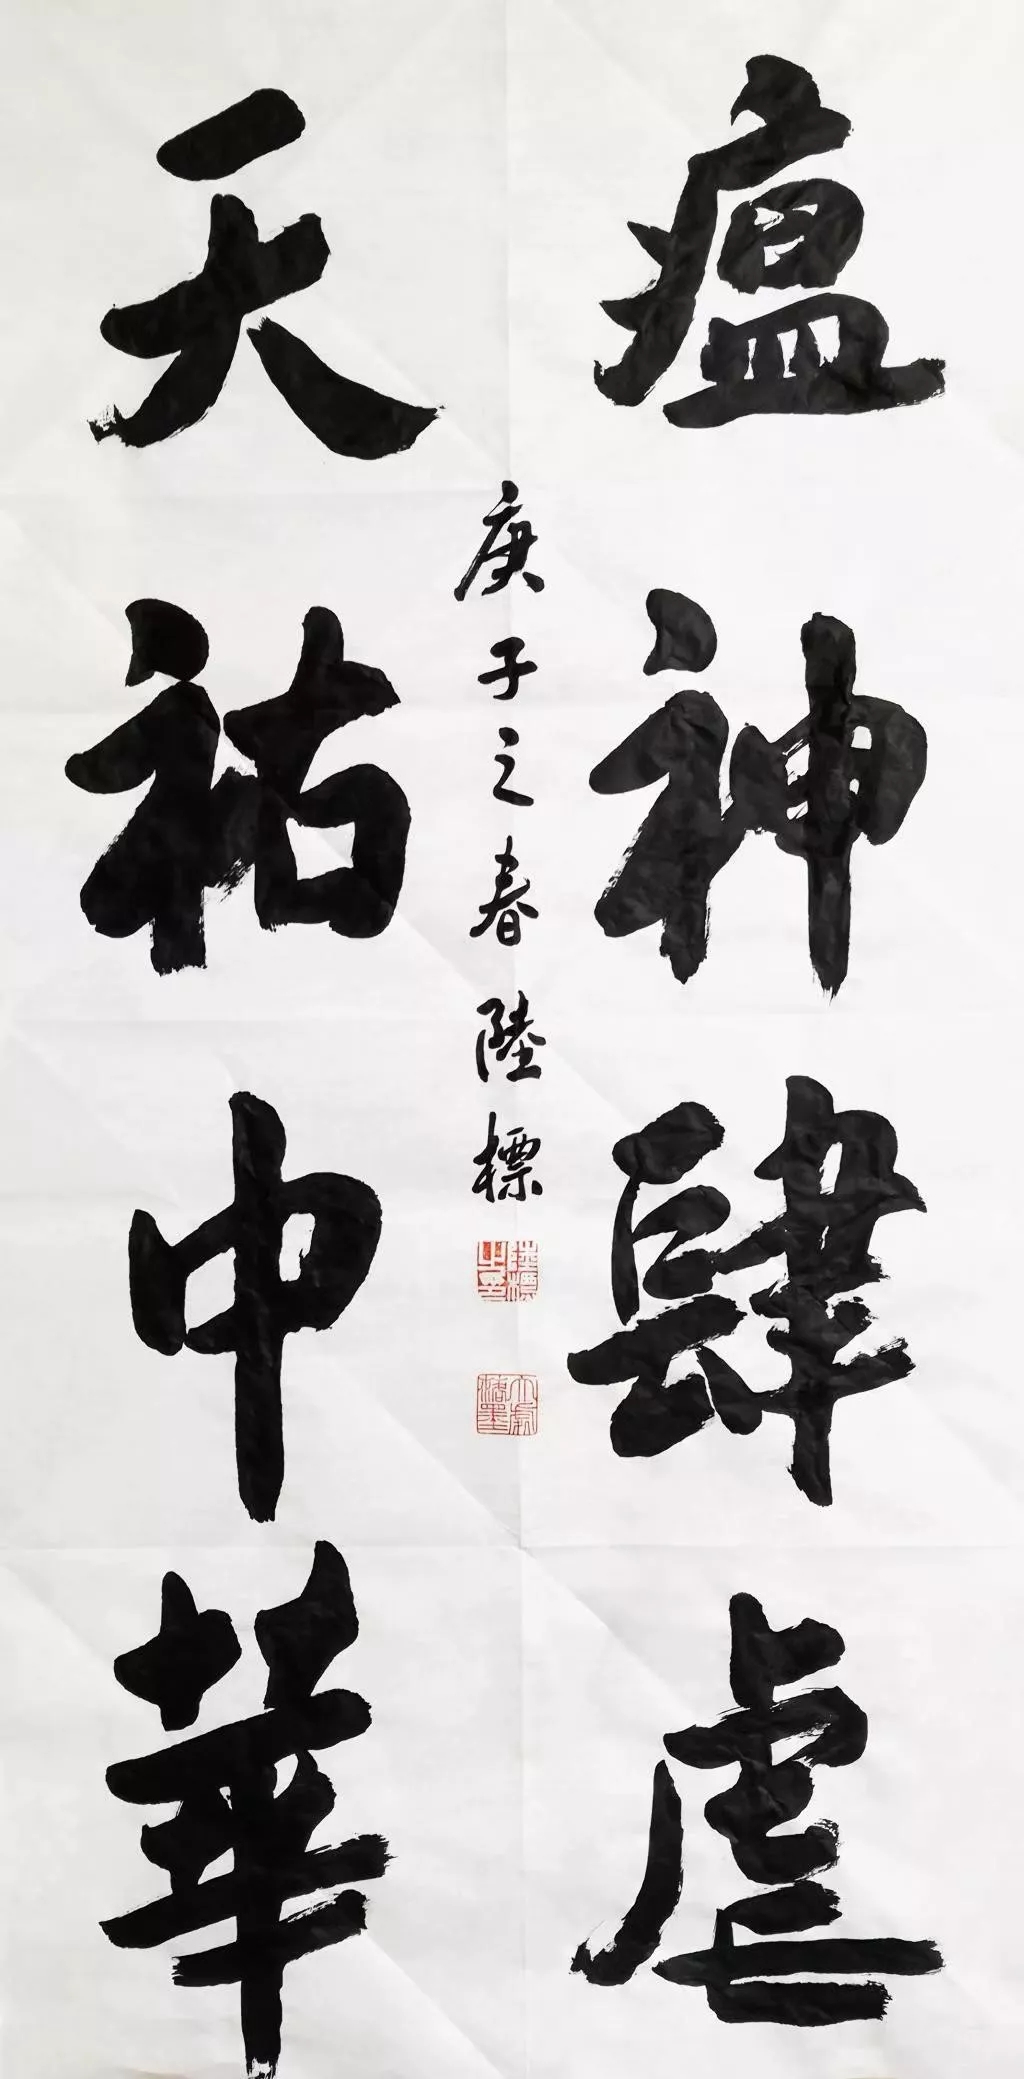 瘟神肆虐
天祐中華
庚子之春陸標